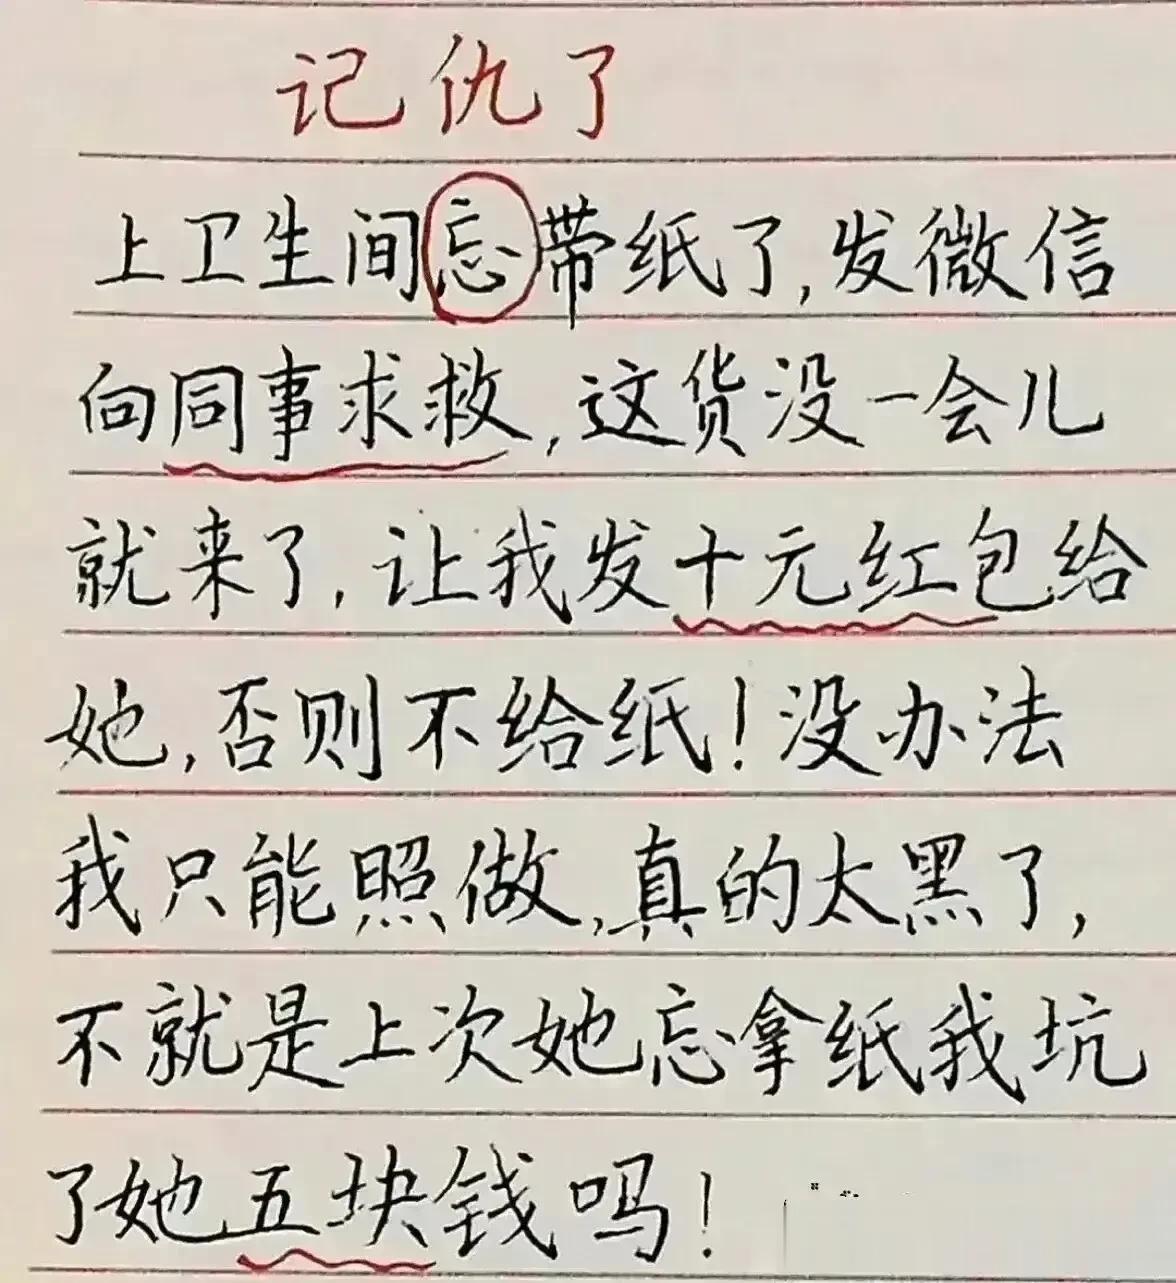 记仇了
上卫生间忘带纸了,发微信
向同事求救,这货没一会儿
就来了,让我发十元红包给
她,否则不给纸!没办法
我只能照做,真的太黑了,
不就是上次她忘拿纸我坑
了她五块钱吗!